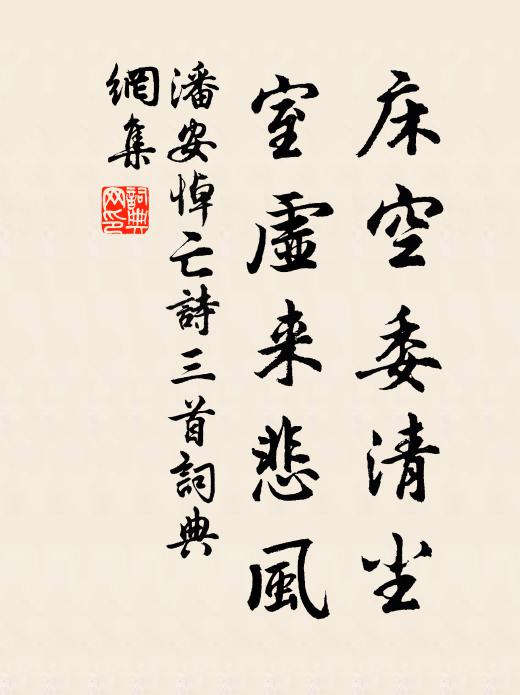 床空委清尘
室虛来悲風
潘安悼亡詩三首詞典
網集
詞典網印